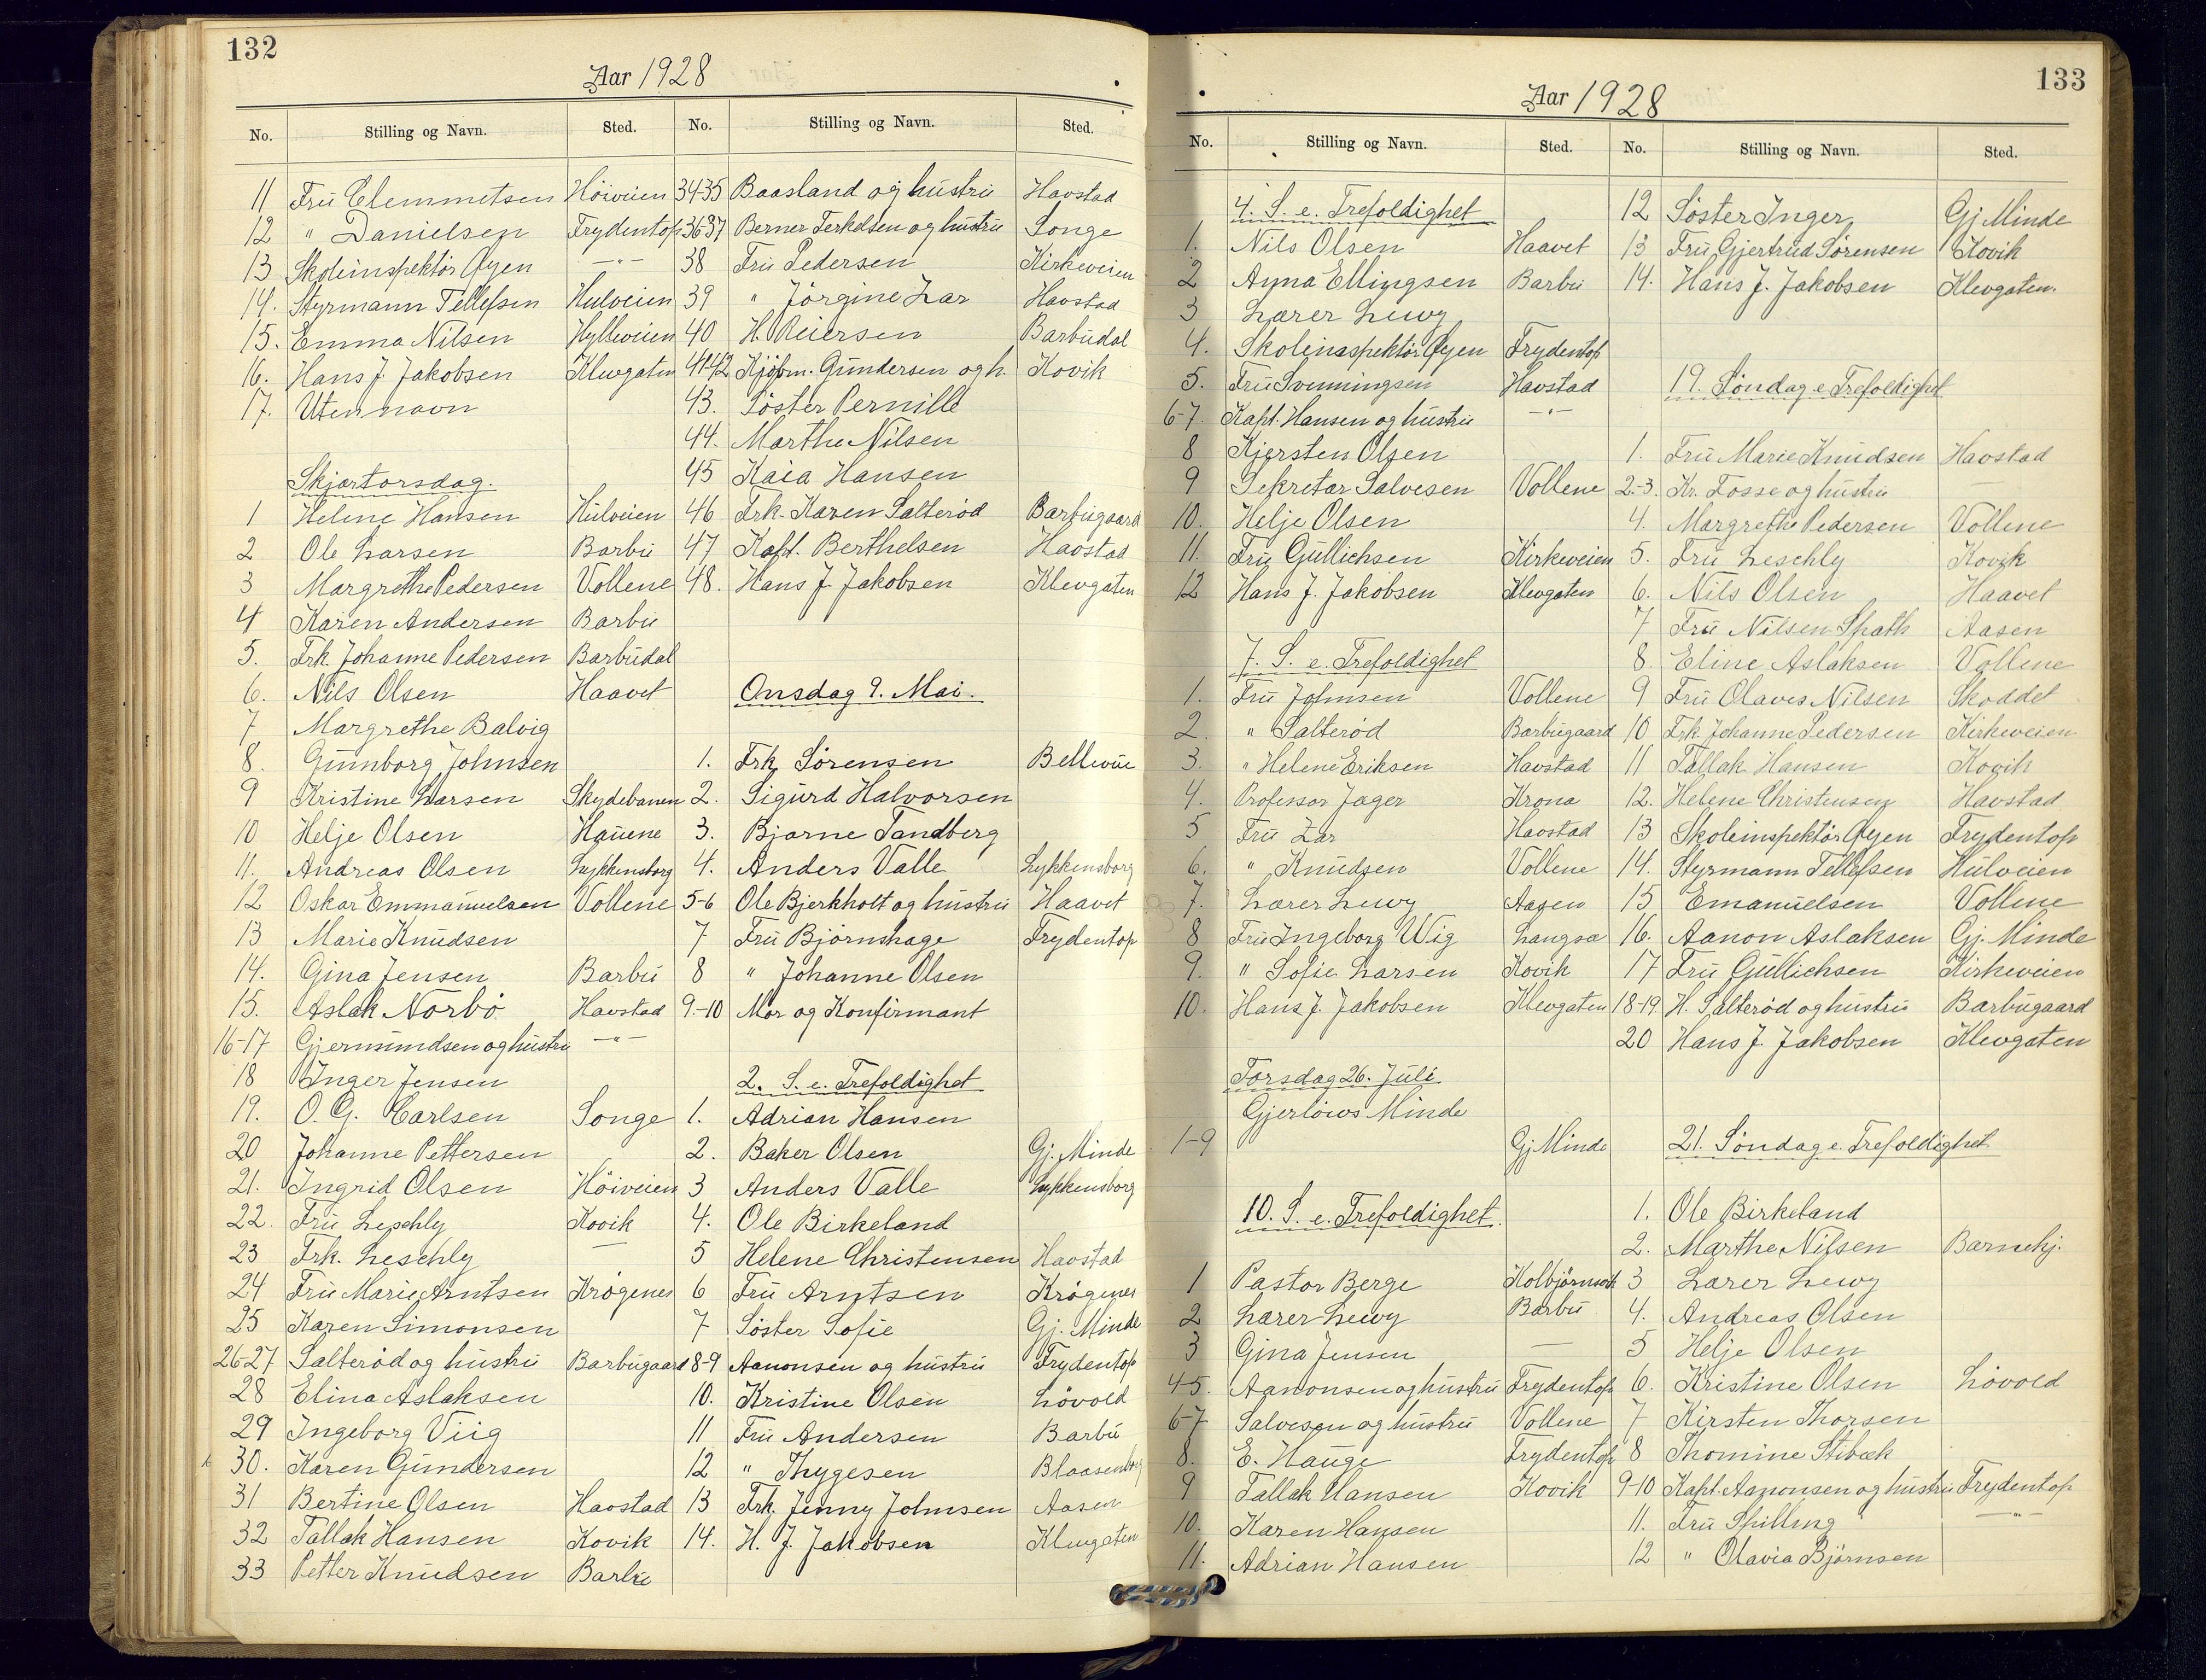 132
Aar 1928
No. Stilling og Navn. Sted.
11 Fru Clemmetsen Höiveien
12 " Danielsen Frydentop
13 Skoleinspektör Øyen —"—
14. Styrmann Tellefsen Hulveien
15. Emma Nilsen Hylleveien
16. Hans J. Jakobsen Klevgaten
17. Uten navn
Skjærtorsdag.
1 Helene Hansen Hulveien
2 Ole Larsen Barbu
3 Margrethe Pedersen Vollene
4 Karen Andersen Barbu
5. Frk. Johanne Pedersen Barbudal
6. Nils Olsen Haavet
7 Margrethe Balvig
8. Gunborg Johnsen
9 Kristine Larsen Skydebanen
10 Helje Olsen Hauene
11. Andreas Olsen Lykkensborg
12 Oskar Emmanuelsen Vollene
13 Marie Knudsen
14. Gina Jensen Barbu
15. Aslak Norbö Havstad
16-17 Gjermundsen og hustru —"—
18 Inger Jensen
19. O. G. Carlsen Songe
20 Johanne Pettersen
21. Ingrid Olsen Höiveien
22. Fru Leschly Kovik
23 Frk. Leschly —
24 Fru Marie Arntsen Krögenes
25 Karen Simonsen
26-27 Salteröd og hustru Barbugaard
28 Elina Aslaksen
29 Ingeborg Viig
30. Karen Gundersen
31 Bertine Olsen Havstad
32 Tallak Hansen Kovik
33 Petter Knudsen Barbu
No. Stilling og Navn. Sted.
34-35 Baasland og hustru Havstad
36-37 Berner Terkelsen og hustru Songe
38 Fru Pedersen Kirkeveien
39 " Jörgine Zar Havstad
40 H. Reiersen Barbudal
41-42 Kjöbm. Gundersen og h. Kovik
43. Söster Pernille
44. Marthe Nilsen
45 Kaia Hansen
46 Frk. Karen Salteröd Barbugaard
47 Kapt. Berthelsen Havstad
48. Hans J. Jakobsen Klevgaten
Onsdag 9. Mai.
1. Frk. Sörensen Bellevue
2. Sigurd Halvorsen
3. Bjarne Tandberg
4. Anders Valle Lykkensborg
5-6 Ole Bjerkholt og hustru Haavet
7 Fru Björnshage Frydentop
8 " Johanne Olsen
9-10 Mor og Konfirmant
2. S. e. Trefoldighet
1. Adrian Hansen
2. Baker Olsen Gj. Minde
3 Anders Valle Lykkensborg
4. Ole Birkeland
5 Helene Christensen Havstad
6 Fru Arntsen Krögenes
7 Söster Sofie Gj. Minde
8-9 Aanonsen og hustru Frydentop
10. Kristine Olsen Lövold
11 Fru Andersen Barbu
12 " Thygesen Blaasenborg
13 Frk. Jenny Johnsen Aasen
14. H. J. Jakobsen Klevgaten
133
Aar 1928
No. Stilling og Navn. Sted.
4. S. e. Trefoldighet
1. Nils Olsen Haavet
2 Anna Ellingsen Barbu
3 Lærer Lewy
4. Skoleinspektör Øyen Frydentop
5. Fru Svenningsen Havstad
6-7 Kapt. Hansen og hustru —"—
8 Kjersten Olsen
9 Sekretær Salvesen Vollene
10. Helje Olsen
11. Fru Gullichsen Kirkeveien
12 Hans J. Jakobsen Klevgaten
7. S. e. Trefoldighet
1. Fru Johnsen Vollene
2. " Salteröd Barbugaard
3. " Helene Eriksen Havstad
4. Professor Jager Krona
5 Fru Zar Havstad
6. " Knudsen Vollene
7. Lærer Lewy Aasen
8 Fru Ingeborg Wig Langsæ
9. " Sofie Larsen Kovik
10. Hans J. Jakobsen Klevgaten
Torsdag 26. Juli
Gjerlöws Minde
1-9 Gj Minde
10. S. e. Trefoldighet.
1 Pastor Berge
2 Lærer Lewy Barbu
3 Gina Jensen —
4-5. Aanonsen og hustru Frydentop
6-7 Salvesen og hustru Vollene
8. E. Hauge Frydentop
9 Tallak Hansen Kovik
10. Karen Hansen
11. Adrian Hansen
No. Stilling og Navn. Sted.
12 Söster Inger Gj Minde
13 Fru Gjertrud Sörensen Kovik
14. Hans J. Jakobsen Klevgaten.
19. Söndag e. Trefoldighet
1. Fru Marie Knudsen Havstad
2-3. Kr. Fosse og hustru
4. Margrethe Pedersen Vollene
5. Fru Leschly Kovik
6. Nils Olsen Haavet
7 Fru Nilsen Spath Aasen
8. Eline Aslaksen Vollene
9 Fru Olaves Nilsen Skoddet
10 Frk Johanne Pedersen Kirkeveien
11 Tallak Hansen Kovik
12. Helene Christensen Havstad
13 Skoleinspektör Øyen Frydentop
14. Styrmann Tellefsen Hulveien
15 Emanuelsen Vollene
16. Aanon Aslaksen Gj. Minde
17 Fru Gullichsen Kirkeveien
18-19. H. Salteröd og hustru Barbugaard
20 Hans J. Jakobsen Klevgaten
21. Söndag e. Trefoldighet
1. Ole Birkeland
2. Marthe Nilsen Barnehj.
3 Lærer Lewy
4. Andreas Olsen
5 Helje Olsen
6. Kristine Olsen Lövold
7 Kirsten Thorsen
8 Thomine Stibæk
9-10 Kapt. Aanonsen og hustru Frydentop
11. Fru Spilling —"—
12 " Olavia Björnsen